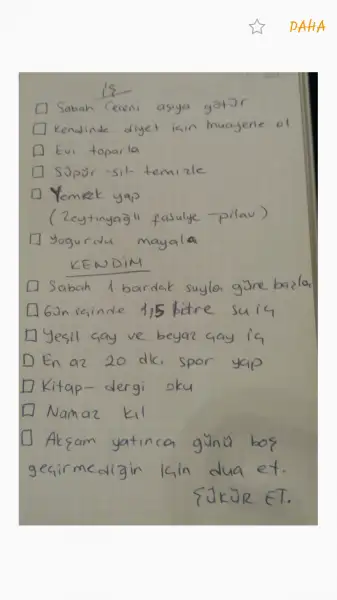 DAHA
İŞ
□ Sabah Cereni aşıya götür
□ Kendinde diyet için muayene ol
□ Evi toparla
□ Süpür - sil - temizle
□ Yemek yap
(Zeytinyağlı fasulye - pilav)
□ Yoğurdu mayala
KENDİM
□ Sabah 1 bardak suyla güne başla
□ Gün içinde 1,5 litre su iç
□ Yeşil çay ve beyaz çay iç
□ En az 20 dk. spor yap
□ Kitap - dergi oku
□ Namaz kıl
□ Akşam yatınca günü boş
geçirmediğin için dua et.
ŞÜKÜR ET.